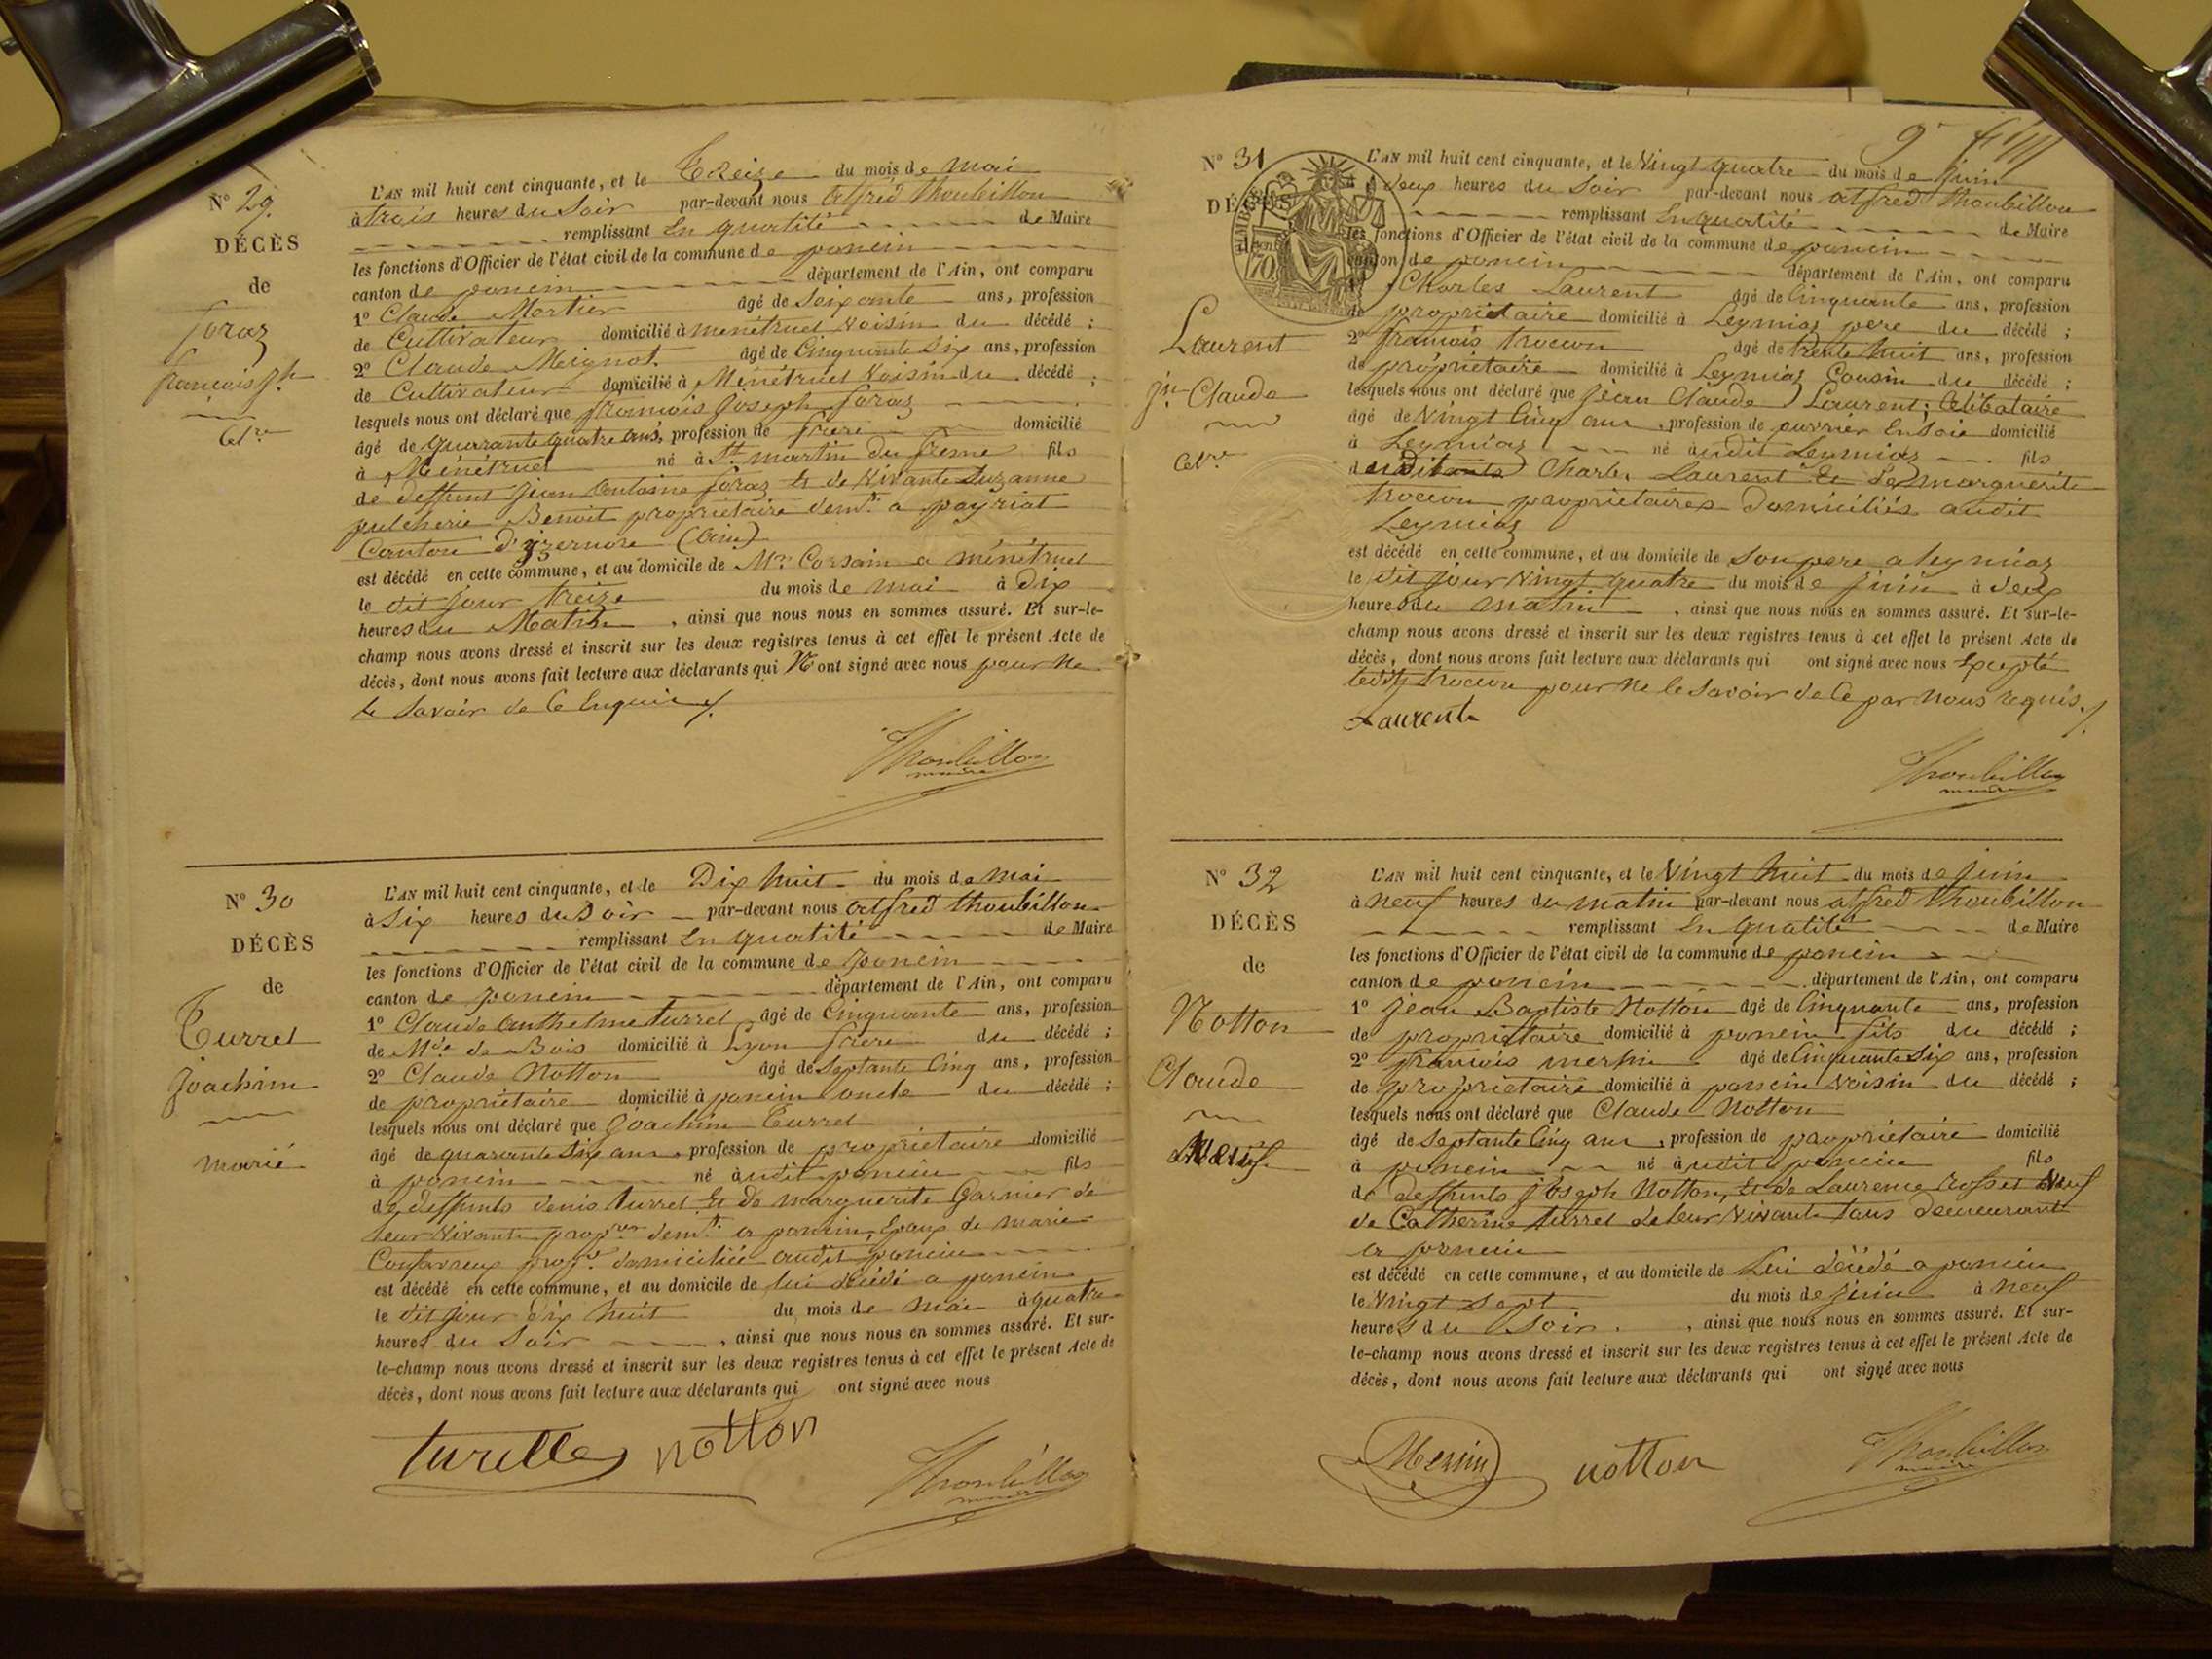 N° 29.
DÉCÈS
de
foraz
françois jh
celre
L'AN mil huit cent cinquante, et le Treize du mois de mai
à trois heures du Soir par-devant nous alfred thoubillon
remplissant en qualité de Maire
les fonctions d'Officier de l'état civil de la commune de poncin
canton de poncin département de l'Ain, ont comparu
1° Claude Mortier âgé de Soixante ans, profession
de Cultivateur domicilié à menétruel voisin du décédé ;
2° Claude Meignot. âgé de Cinquante Six ans, profession
de Cultivateur domicilié à Ménétruel voisin du décédé ;
lesquels nous ont déclaré que françois Joseph foraz
âgé de quarante quatre ans, profession de domicilié
à Ménétruel né à St martin du fresne fils
de deffunt jean antoine foraz et de vivante Suzanne
pulcherie Benoit propriétaire demt a payriat
Canton d'izernore (ain)
est décédé en cette commune, et au domicile de Mr Corsain a ménétruel
le dit jour treize du mois de mai à Dix
heures du Matin, ainsi que nous nous en sommes assuré. Et sur-le-
champ nous avons dressé et inscrit sur les deux registres tenus à cet effet le présent Acte de
décès, dont nous avons fait lecture aux déclarants qui N'ont signé avec nous pour ne
le Savoir de ce Enquis
Thoubillon
maire
N° 30
DÉCÈS
de
Turrel
Joachim
marié
L'AN mil huit cent cinquante, et le Dix huit du mois de mai
à Six heures du Soir par-devant nous alfred thoubillon
remplissant en qualité de Maire
les fonctions d'Officier de l'état civil de la commune de poncin
canton de poncin département de l'Ain, ont comparu
1° Claude anthelme turrel âgé de Cinquante ans, profession
de Md de Bois domicilié à Lyon frere du décédé ;
2° Claude Notton âgé de Septante Cinq ans, profession
de propriétaire domicilié à poncin oncle du décédé ;
lesquels nous ont déclaré que Joachim Turrel
âgé de quarante Six ans, profession de propriétaire domicilié
à poncin né à udit poncin fils
de deffunts denis turrel et de marguerite Garnier de
leur vivante demt a poncin, Epoux de marie
domiciliée audit poncin
est décédé en cette commune, et au domicile de lui décédé a poncin
le dit jour dix huit du mois de mai à quatre
heures du Soir, ainsi que nous nous en sommes assuré. Et sur-
le-champ nous avons dressé et inscrit sur les deux registres tenus à cet effet le présent Acte de
décès, dont nous avons fait lecture aux déclarants qui ont signé avec nous
turelle notton
Thoubillon
maire
9
N° 31
DÉCÈS
Laurent
jn Claude
celre
L'AN mil huit cent cinquante, et le Vingt quatre du mois de Juin
à deux heures du Soir par-devant nous alfred thoubillon
remplissant en qualité de Maire
les fonctions d'Officier de l'état civil de la commune de poncin
canton de poncin département de l'Ain, ont comparu
1° Charles Laurent âgé de Cinquante ans, profession
de propriétaire domicilié à Leymiaz pere du décédé ;
2° françois trocon âgé de trente huit ans, profession
de propriétaire domicilié à Leymiaz Cousin du décédé ;
lesquels nous ont déclaré que jean Claude Laurent, Celibataire
âgé de Vingt Cinq ans, profession de ouvrier En Soie domicilié
à Leymiaz né à udit Leymiaz fils
Charles Laurent et de marguerite
trocon propriétaires domiciliés audit
Leymiaz
est décédé en cette commune, et au domicile de Son pere a leymiaz
le dit jour vingt quatre du mois de juin à deux
heures du matin, ainsi que nous nous en sommes assuré. Et sur-le-
champ nous avons dressé et inscrit sur les deux registres tenus à cet effet le présent Acte de
décès, dont nous avons fait lecture aux déclarants qui ont signé avec nous Excepté
ledit trocon pour ne le Savoir de ce par nous requis.
Laurent
Thoubillon
maire
N° 32
DÉCÈS
de
Notton
Claude
Veuf
L'AN mil huit cent cinquante, et le Vingt huit du mois de juin
à neuf heures du matin par-devant nous alfred thoubillon
remplissant en qualité de Maire
les fonctions d'Officier de l'état civil de la commune de poncin
canton de poncin département de l'Ain, ont comparu
1° jean Baptiste Notton âgé de Cinquante ans, profession
de propriétaire domicilié à poncin fils du décédé ;
2° françois mermin âgé de Cinquante Six ans, profession
de propriétaire domicilié à poncin voisin du décédé ;
lesquels nous ont déclaré que Claude Notton
âgé de Septante Cinq ans, profession de propriétaire domicilié
à poncin né à udit poncin fils
de deffunts joseph Notton, et de Laurence rosset Veuf
de Catherine turrel de leur vivante tous demeurant
a poncin
est décédé en cette commune, et au domicile de Lui décédé a poncin
le Vingt Sept. du mois de juin à neuf
heures du Soir, ainsi que nous nous en sommes assuré. Et sur-
le-champ nous avons dressé et inscrit sur les deux registres tenus à cet effet le présent Acte de
décès, dont nous avons fait lecture aux déclarants qui ont signé avec nous
Mermin notton
Thoubillon
maire